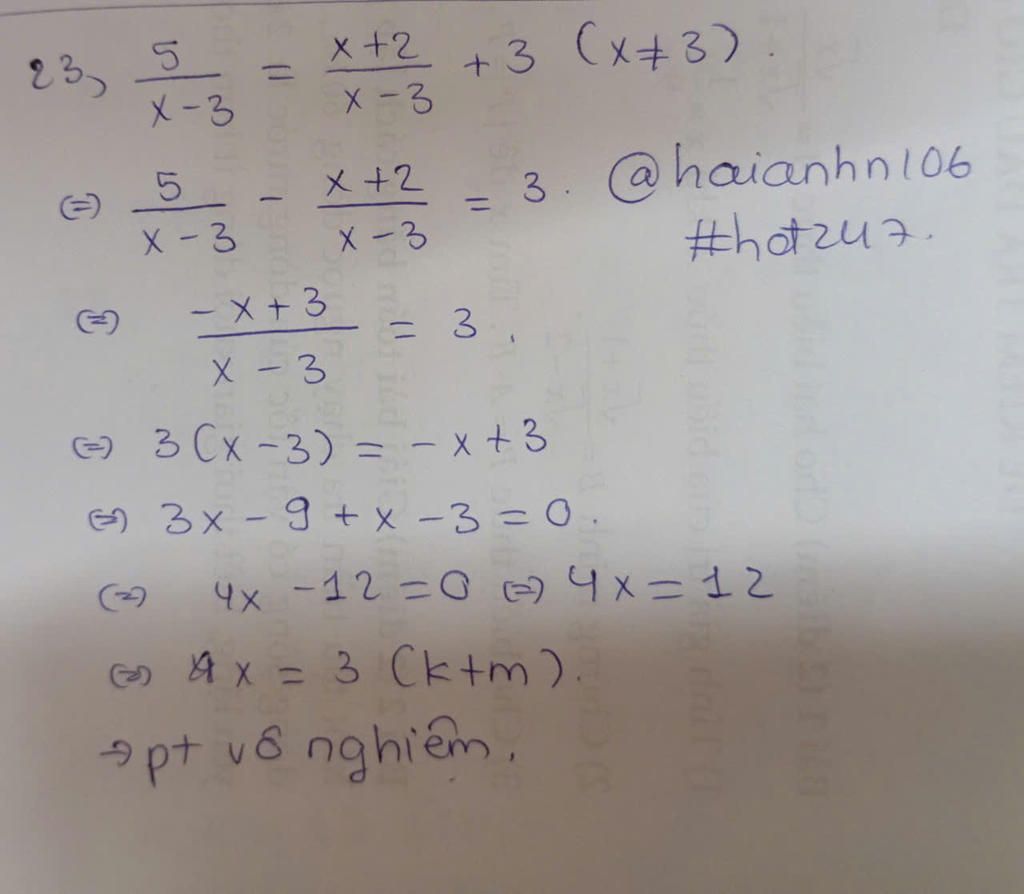 23, 5/(x-3) = (x+2)/(x-3) + 3 (x≠3).
(=) 5/(x-3) - (x+2)/(x-3) = 3. @haianhn106
#hot247.
(=) (-x+3)/(x-3) = 3.
(=) 3(x-3) = -x+3
(=) 3x - 9 + x - 3 = 0.
(=) 4x - 12 = 0 (=) 4x = 12
(=) x = 3 (k+m).
→ pt vô nghiêm.